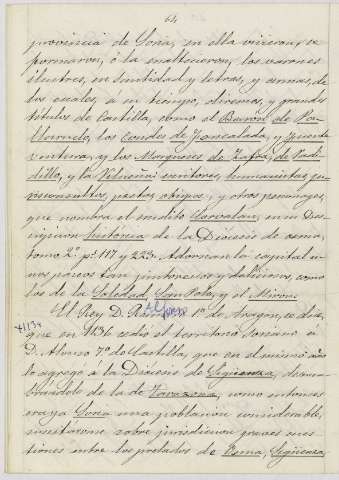 64
provincia de Soria, en ella vivieron, se
formaron, ó la enaltecieron, los varones
ilustres, en Santidad y letras, y armas, de
los cuales, á su tiempo, diremos, y grandes
títulos de Castilla, como el Baron de
los Condes de Fuencalada, y Fuente
ventura, y los Marqueses de Zafra, de Vadi
llo, y la Vilueña; escritores, humanistas, ju
risconsultos, poetas, obispos, y otros personages,
que nombra el erudito Loperraez, en su Des
cripcion histórica de la Diócesis de Osma,
tomo 2º pº 117 y 223. Adornan la capital u
nos paseos tan pintorescos y deliciosos, como
los de la Soledad, San Polo, y el Miron.
El Rey D. Alfonso 1º de Aragon, se dice,
1134
que en 1136 cedió el territorio soriano á
D. Alfonso 7º de Castilla, que en el mismo año
lo agregó á la Diócesis de Sigüenza, desmem
brándolo de la de Tarazona, como entonces
era ya Soria una poblacion considerable,
suscitáronse sobre jurisdiccion graves cues
tiones entre los prelados de Osma, Sigüenza,